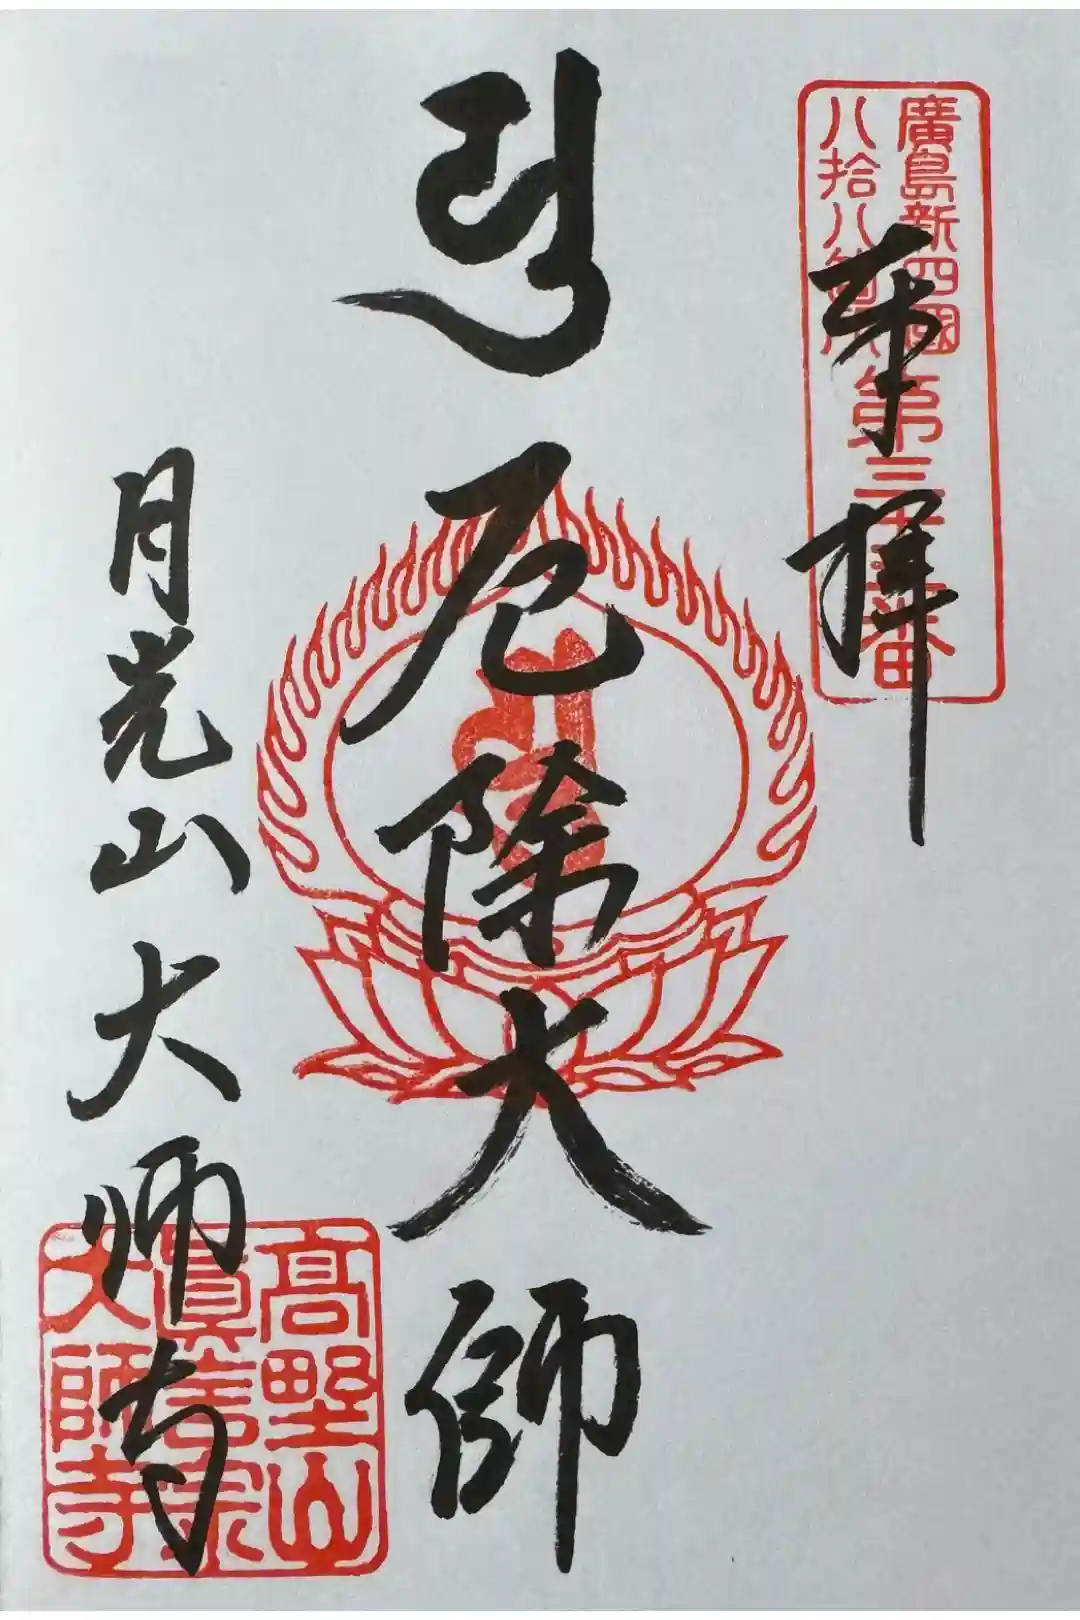 奉拝
廣島新四國
八拾八箇所
第三十三番
厄除大師
月光山
大師寺
高野山
真言宗
大師寺